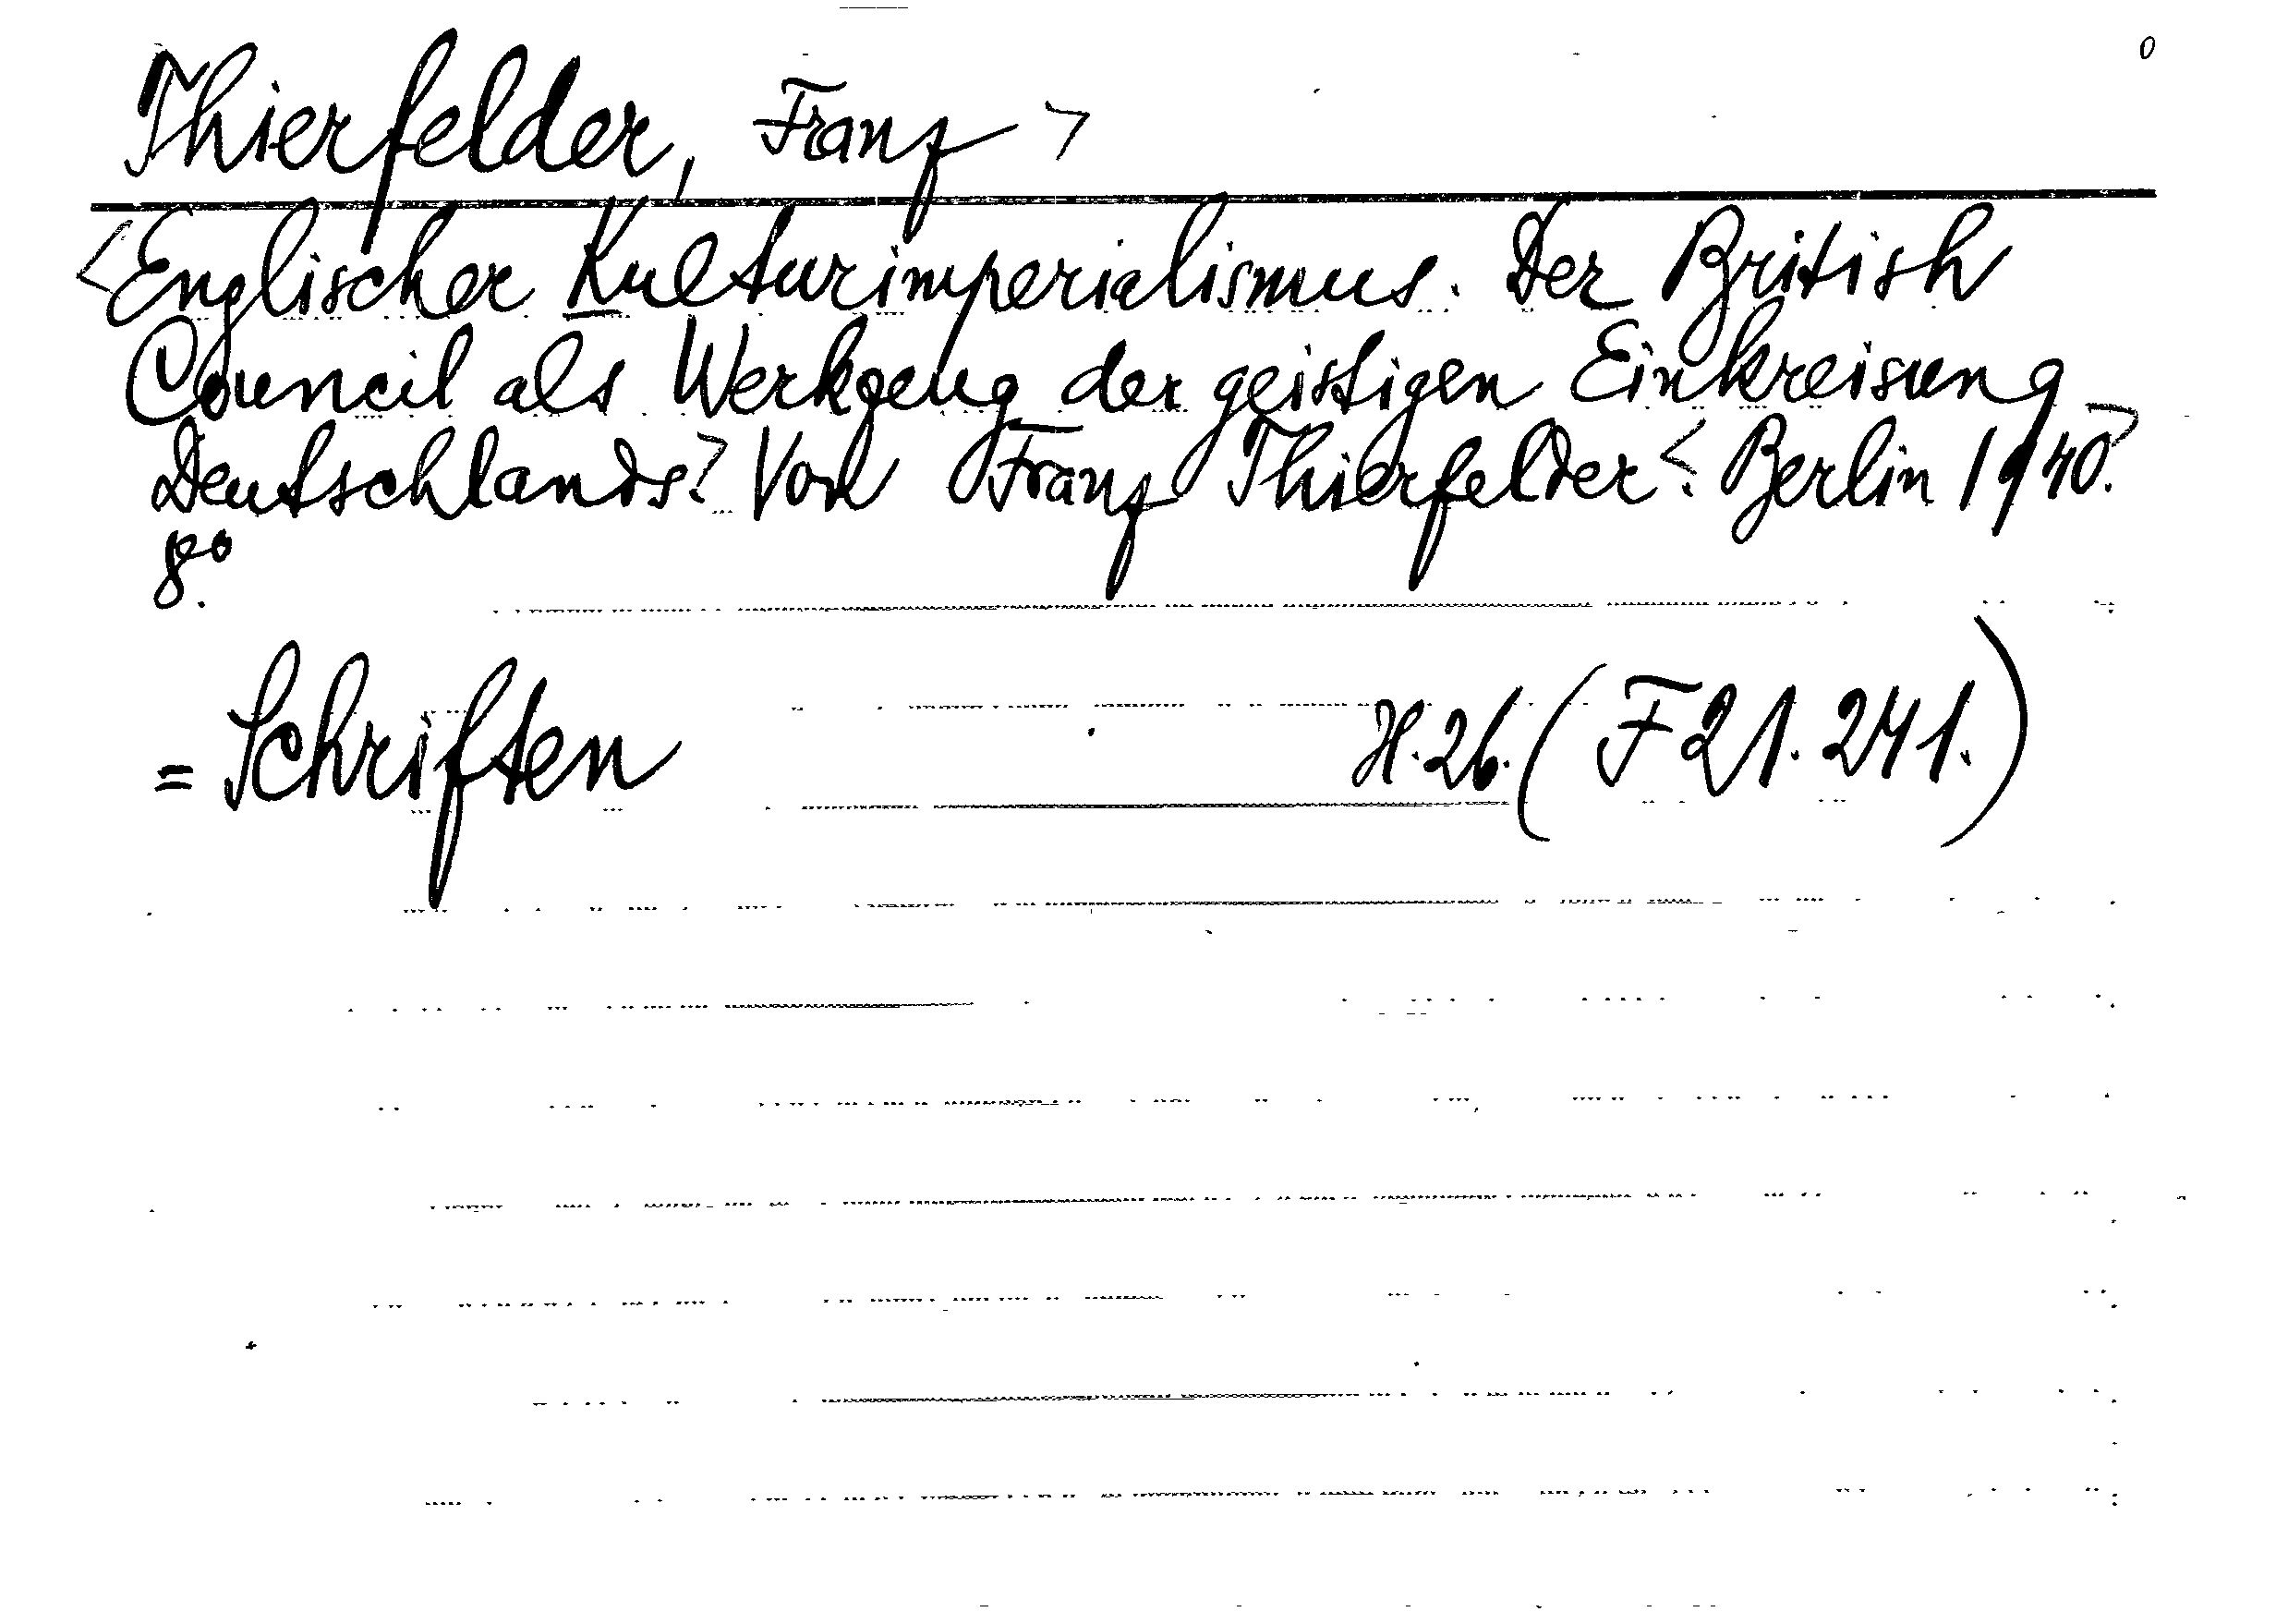 Thierfelder, Franz >
<Englischer Kulturimperialismus. Der British
Council als Werkzeug der geistigen Einkreisung
Deutschlands.> Von Franz Thierfelder<. Berlin 1940.>
8°.
= Schriften H. 26. (F 21. 241.)